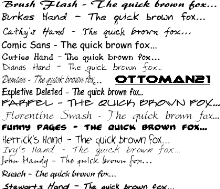 Brush Flash - The quick brown fox...
Burkes Hand - The quick brown fox...
Cathy's Hand - The quick brown fox...
Comic Sans - The quick brown fox...
Curtiss Hand - The quick brown fox...
Dianas Hand - The quick brown fox...
Demian - The quick brown fox... OTTOMANZI
Expletive Deleted - The quick brown fox...
FARREL - THE QUICK BROWN FOX...
Florentine Swash - The quick brown fox...
FUNNY PAGES - THE QUICK BROWN FOX...
Herrick's Hand - The quick brown fox...
Ivy's Hand - The quick brown fox...
John Handy - The quick brown fox...
Ruach - the quick brown fox...
Stewarts Hand - The quick brown fox...